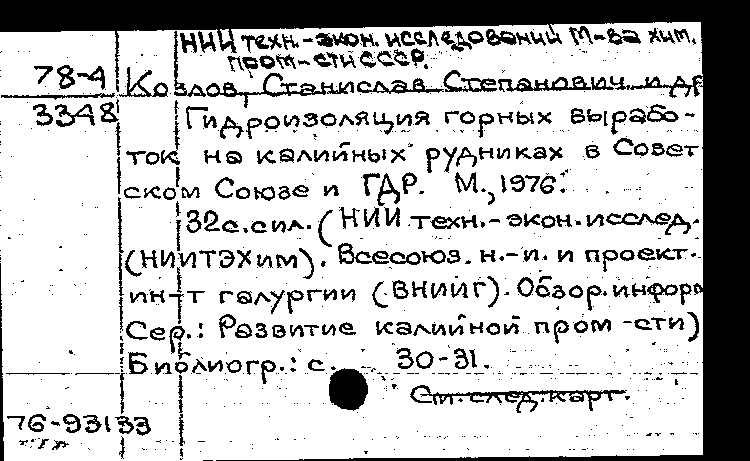 НИИ техн.-экон. исследований М-ва хим.
пром-сти СССР.
78-4 Козлов, Станислав Степанович и др
3348 Гидроизоляция горных вырабо-
ток на калийных рудниках в Совет
ском Союзе и ГДР. М., 1976.
32с.сил. (НИИ техн.-экон.исслед.
(НИИТЭХим). Всесоюз. н.-и. и проект.
ин-т галургии (ВНИИГ). Обзор.информ
Сер.: Развитие калийной пром-сти)
Библиогр.: с. 30-31.
См.след.карт.
76-93133